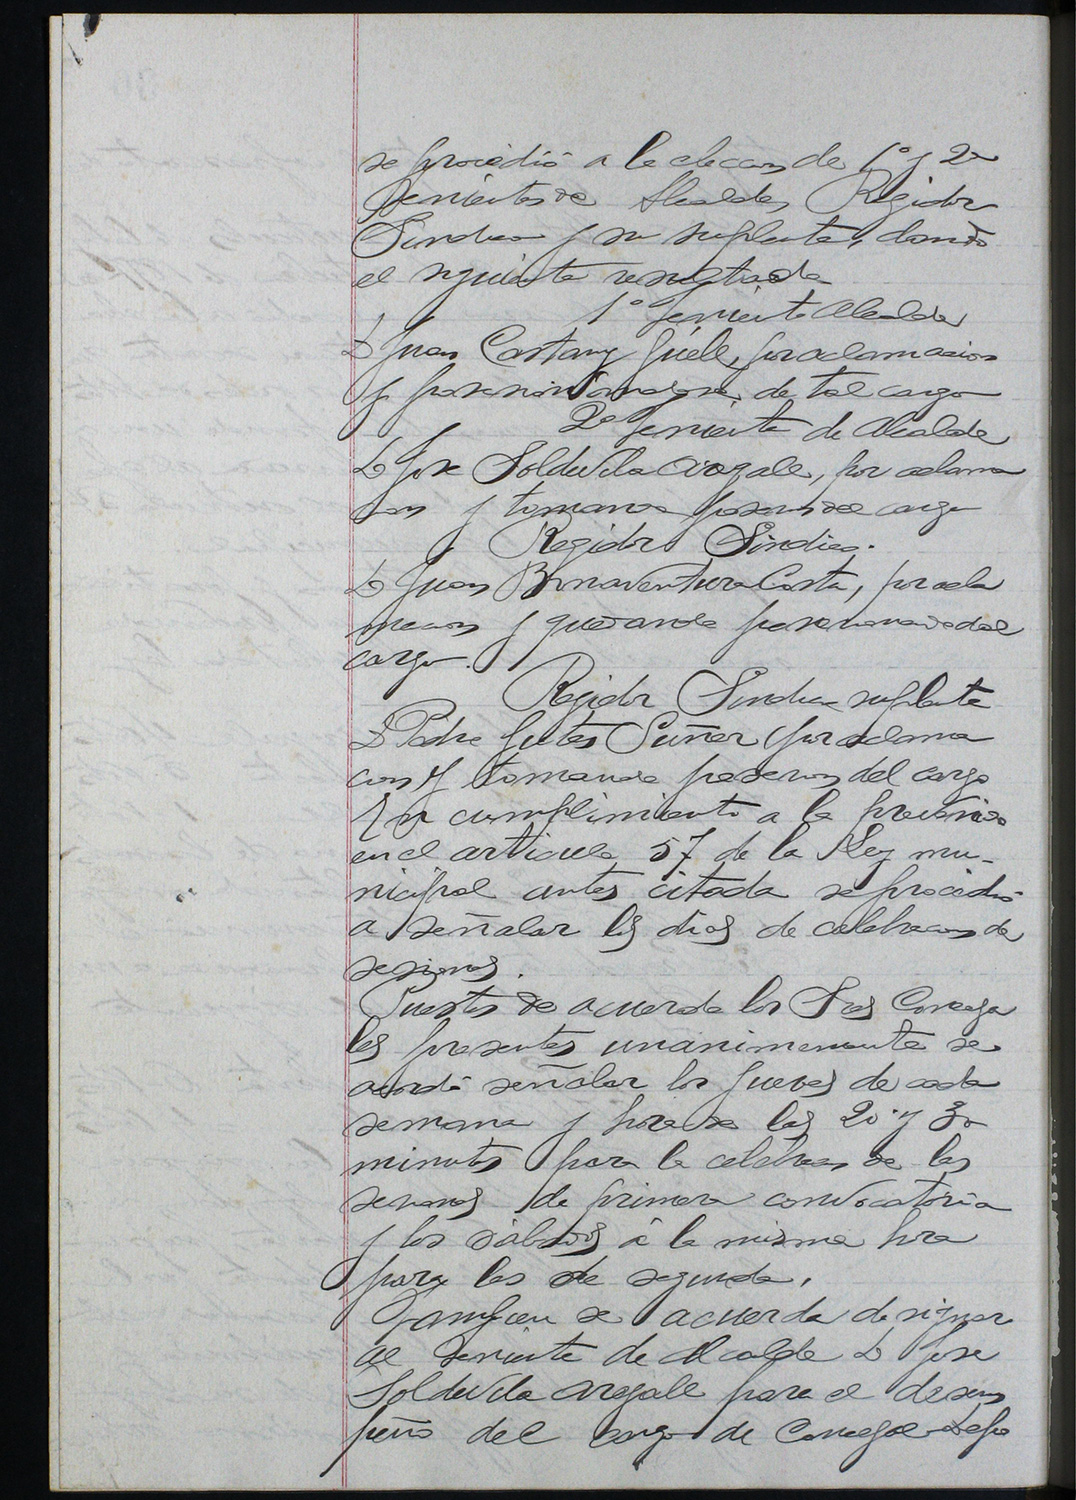 se procedió a la eleccion de 1º y 2º
Tenientes de Alcalde, Regidor
Sindico y su suplente, dando
el siguiente resultado
1º Teniente Alcalde
D Juan Castany Güell, por aclamacion
y posesionandose de tal cargo
2º Teniente de Alcalde
D Jose Soldevila Aregall, por aclama
cion y tomando posesion del cargo
Regidor Sindico.
D Juan Bonaventura Costa, por acla
macion y quedando posesionado del
cargo.
Regidor Sindico suplente
D Pedro Suñer por aclama
cion y tomando posesion del cargo
En cumplimiento a lo prevenido
en el articulo 57 de la Ley mu-
nicipal antes citada se procedió
a señalar los dias de celebracion de
sesiones.
Puestos de acuerdo los Sres Conceja
les presentes unanimemente se
acordó señalar los jueves de cada
semana y hora de las 20 y 30
minutos para la celebracion de las
sesiones de primera convocatoria
y los sábados á la misma hora
para las de segunda.
Tambien se acuerda designar
al Teniente de Alcalde D Jose
Soldevila Aregall para el desem
peño del cargo de Concejal Depo